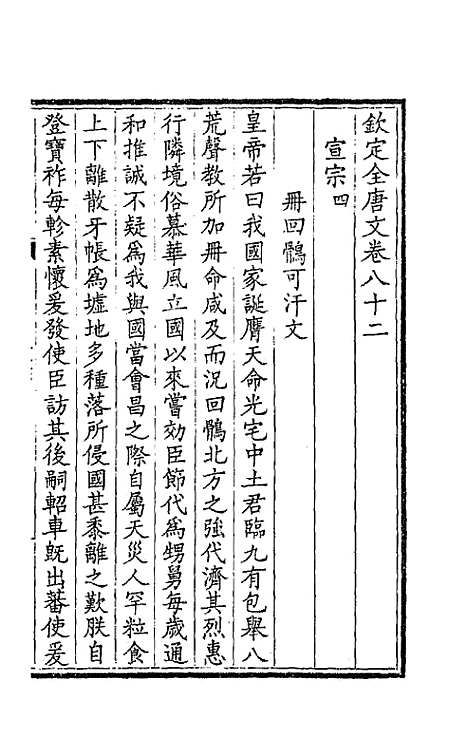 欽定全唐文卷八十二
宣宗四
冊回鶻可汗文
皇帝若曰我國家誕膺天命光宅中土君臨九有包舉八
荒聲教所加冊命咸及而況回鶻北方之強代濟其烈惠
行隣境俗慕華風立國以來嘗効臣節代為甥舅每歲通
和推誠不疑為我與國當會昌之際自屬天災人罕粒食
上下離散牙帳為墟地多種落所侵國甚黍離之歎朕自
登寶祚每軫素懷爰發使臣訪其後嗣軺車既出蕃使爰